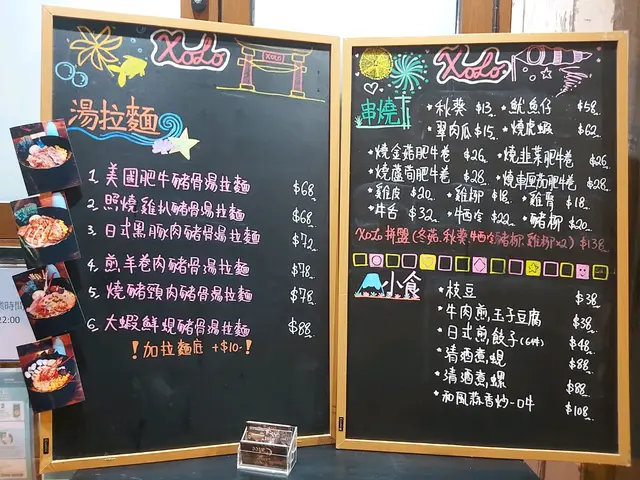 XoLo
XOLO
湯拉麵
1. 美國肥牛豬骨湯拉麵 $68
2. 照燒雞扒豬骨湯拉麵 $68
3. 日式黑豚肉豬骨湯拉麵 $72
4. 煎羊卷肉豬骨湯拉麵 $78
5. 燒豬頸肉豬骨湯拉麵 $78
6. 大蝦鮮蜆豬骨湯拉麵 $88
!加拉麵底 +$10-!
XoLo
串燒
•秋葵 $13 •魷魚仔 $58
•翠肉瓜 $15 •燒虎蝦 $62
•燒金菇肥牛卷 $26 •燒韭菜肥牛卷 $26
•燒蘆荀肥牛卷 $28 •燒車厘茄肥牛卷 $28
•雞皮 $20 •雞柳 $18 •雞腎 $18
•牛舌 $32 •牛西冷 $22 •豬柳 $20
XoLo 拼盤 (冬菇, 秋葵, 牛西冷, 豬柳, 雞柳 x2) $138
小食
•枝豆 $38
•牛肉煎玉子豆腐 $38
•日式煎餃子(6件) $48
•清酒煮蜆 $88
•清酒煮螺 $88
•和風蒜香炒一口牛 $108
時間
22:00